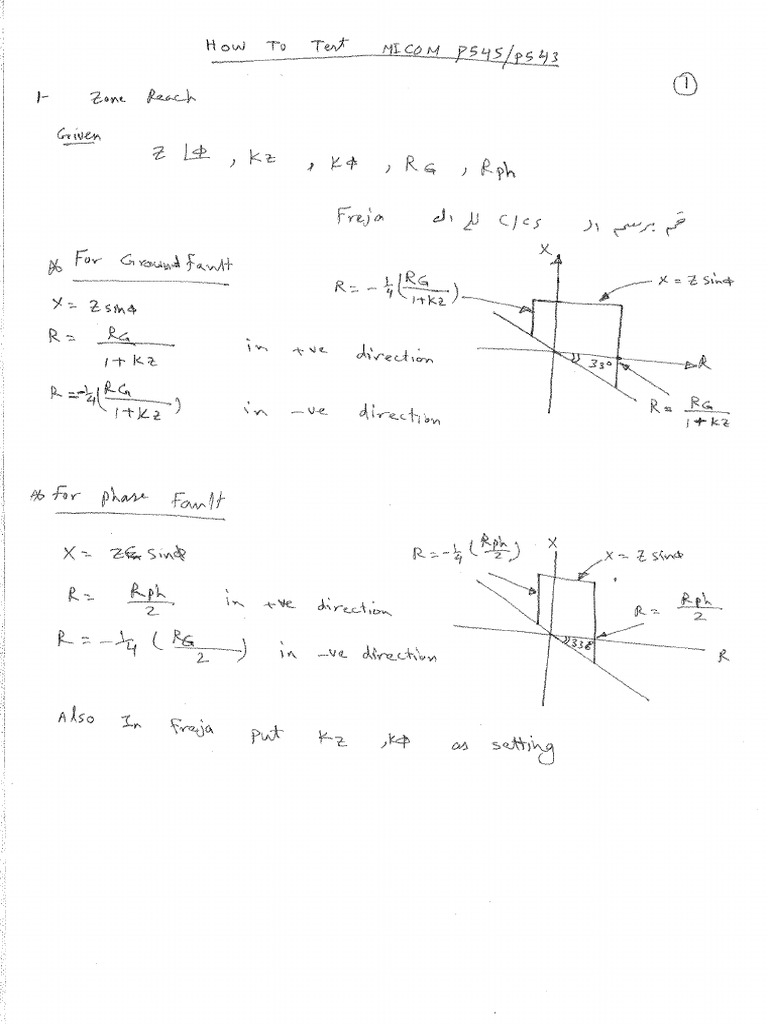 How To Test MICOM P545/P543
1
1- Zone Reach
Given
Z ∠Φ , KZ , KΦ , RG , Rph
قم برسم ال C/CS لل Freja
For Ground fault
X = Z sinΦ
R = RG / 1+KZ in +ve direction
R = -1/4 (RG / 1+KZ) in -ve direction
R = -1/4 (RG / 1+KZ)
X
X = Z sinΦ
33°
R
R = RG / 1+KZ
For phase Fault
X = Z sinΦ
R = Rph / 2 in +ve direction
R = -1/4 (RG / 2) in -ve direction
R = -1/4 (Rph / 2)
X
X = Z sinΦ
R = Rph / 2
33°
R
Also In Freja put KZ , KΦ as setting